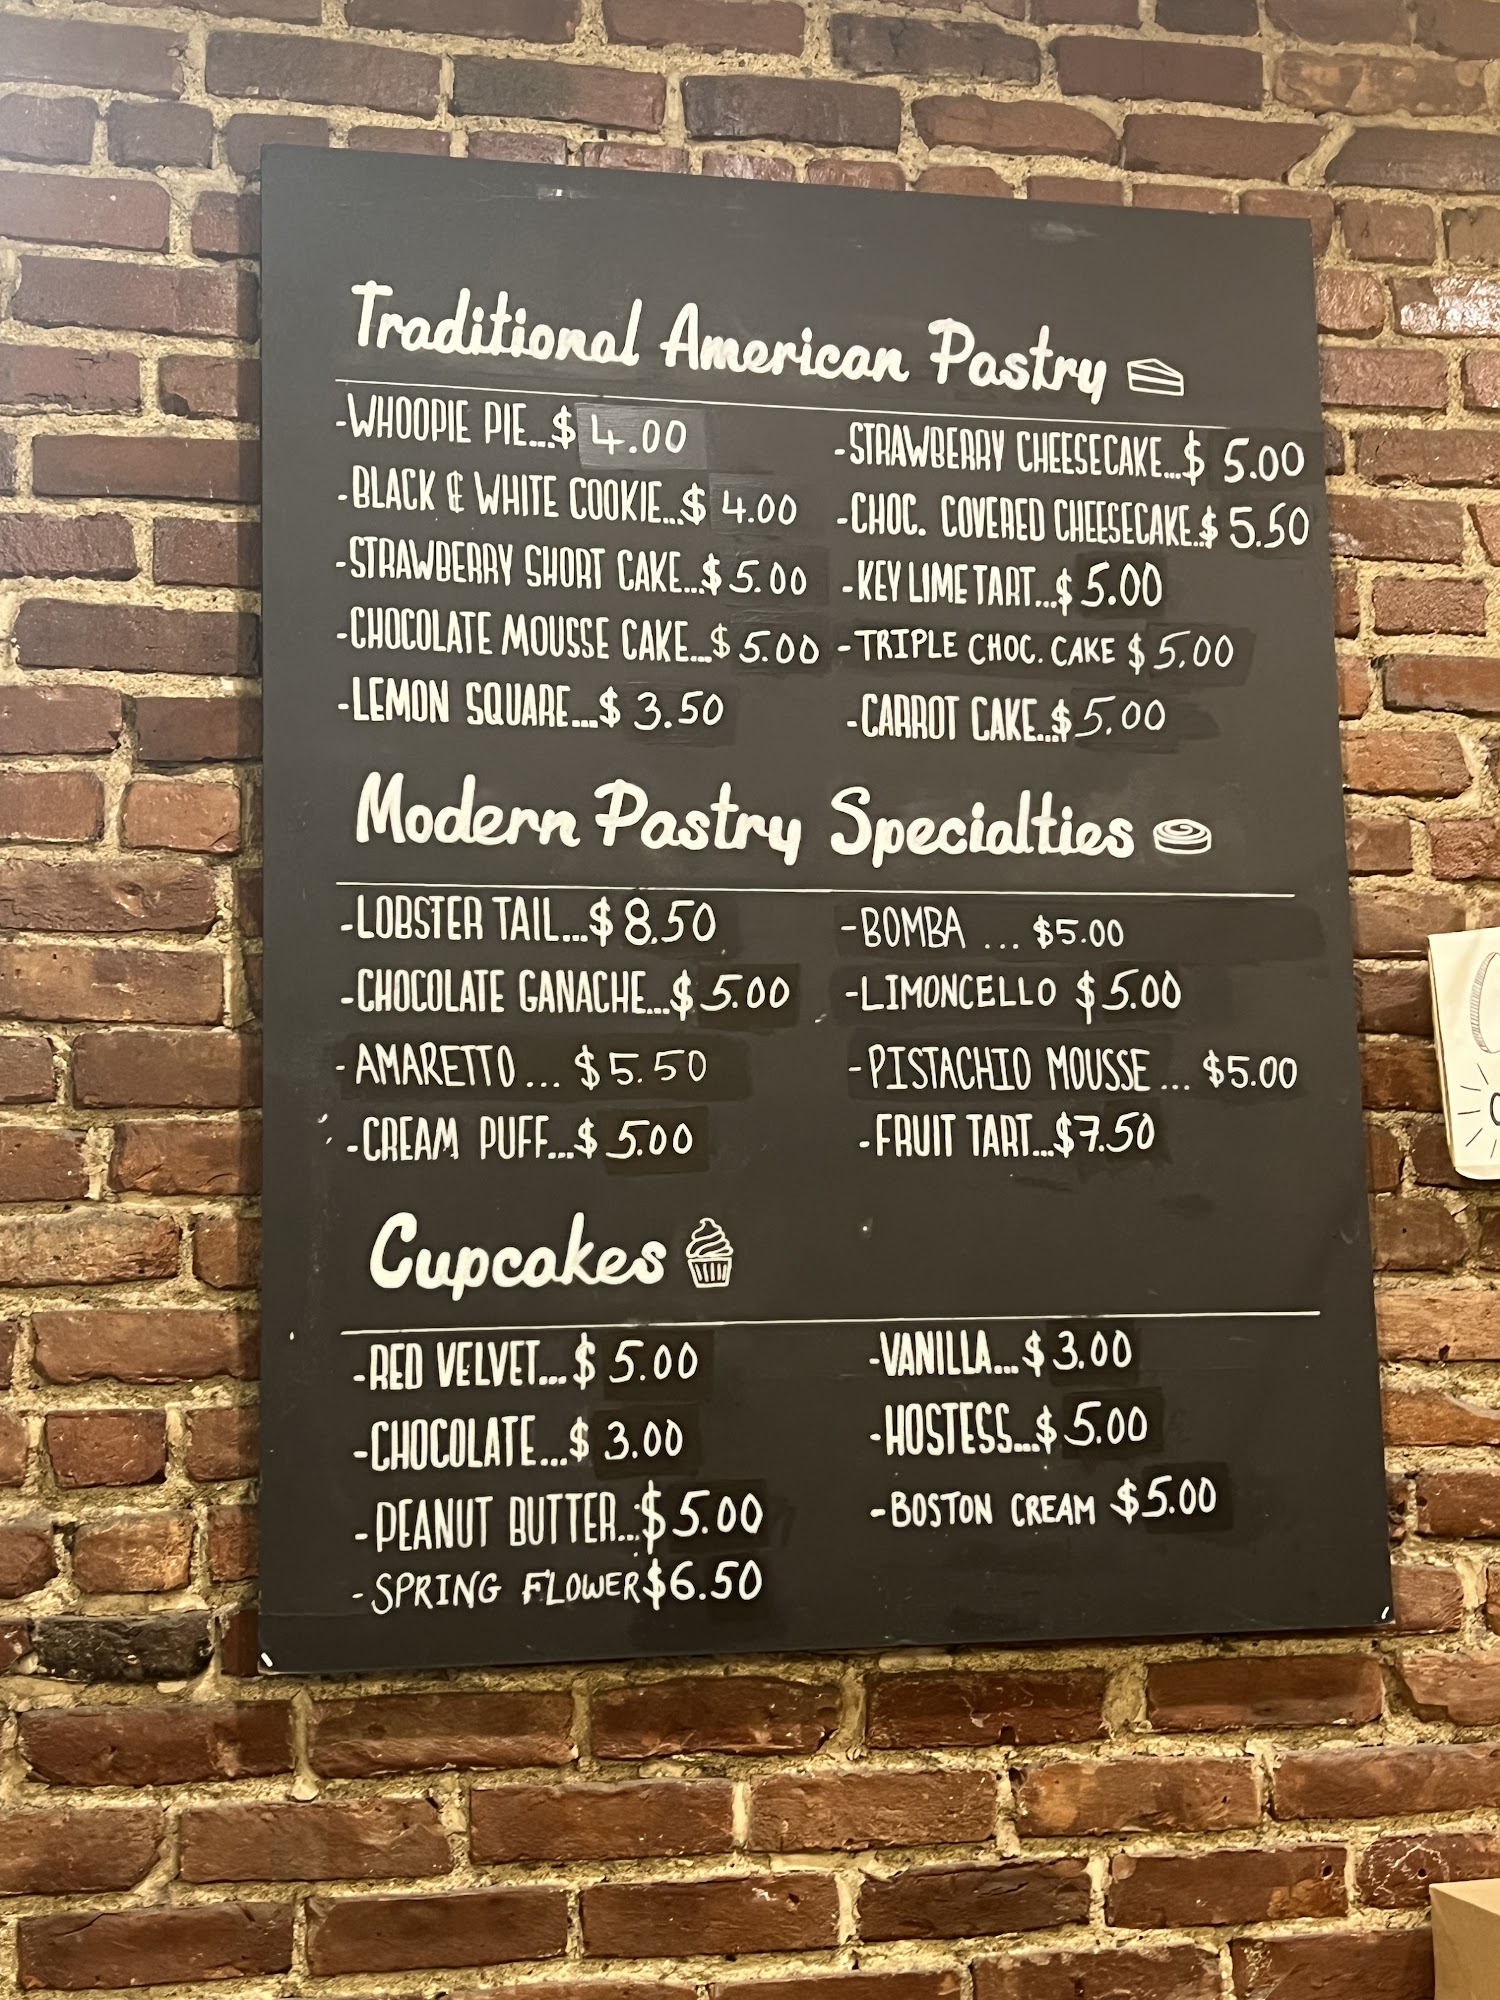 Traditional American Pastry
-WHOOPIE PIE...$ 4.00
-BLACK & WHITE COOKIE...$ 4.00
-STRAWBERRY SHORT CAKE...$ 5.00
-CHOCOLATE MOUSSE CAKE...$ 5.00
-LEMON SQUARE...$ 3.50
-STRAWBERRY CHEESECAKE...$ 5.00
-CHOC. COVERED CHEESECAKE..$ 5.50
-KEY LIME TART...$ 5.00
-TRIPLE CHOC. CAKE $ 5.00
-CARROT CAKE...$ 5.00
Modern Pastry Specialties
-LOBSTER TAIL...$ 8.50
-CHOCOLATE GANACHE...$ 5.00
-AMARETTO ... $ 5.50
-CREAM PUFF...$ 5.00
-BOMBA ... $5.00
-LIMONCELLO $ 5.00
-PISTACHIO MOUSSE ... $5.00
-FRUIT TART...$7.50
Cupcakes
-RED VELVET...$ 5.00
-CHOCOLATE...$ 3.00
-PEANUT BUTTER...$ 5.00
-SPRING FLOWER $6.50
-VANILLA...$ 3.00
-HOSTESS...$ 5.00
-BOSTON CREAM $5.00